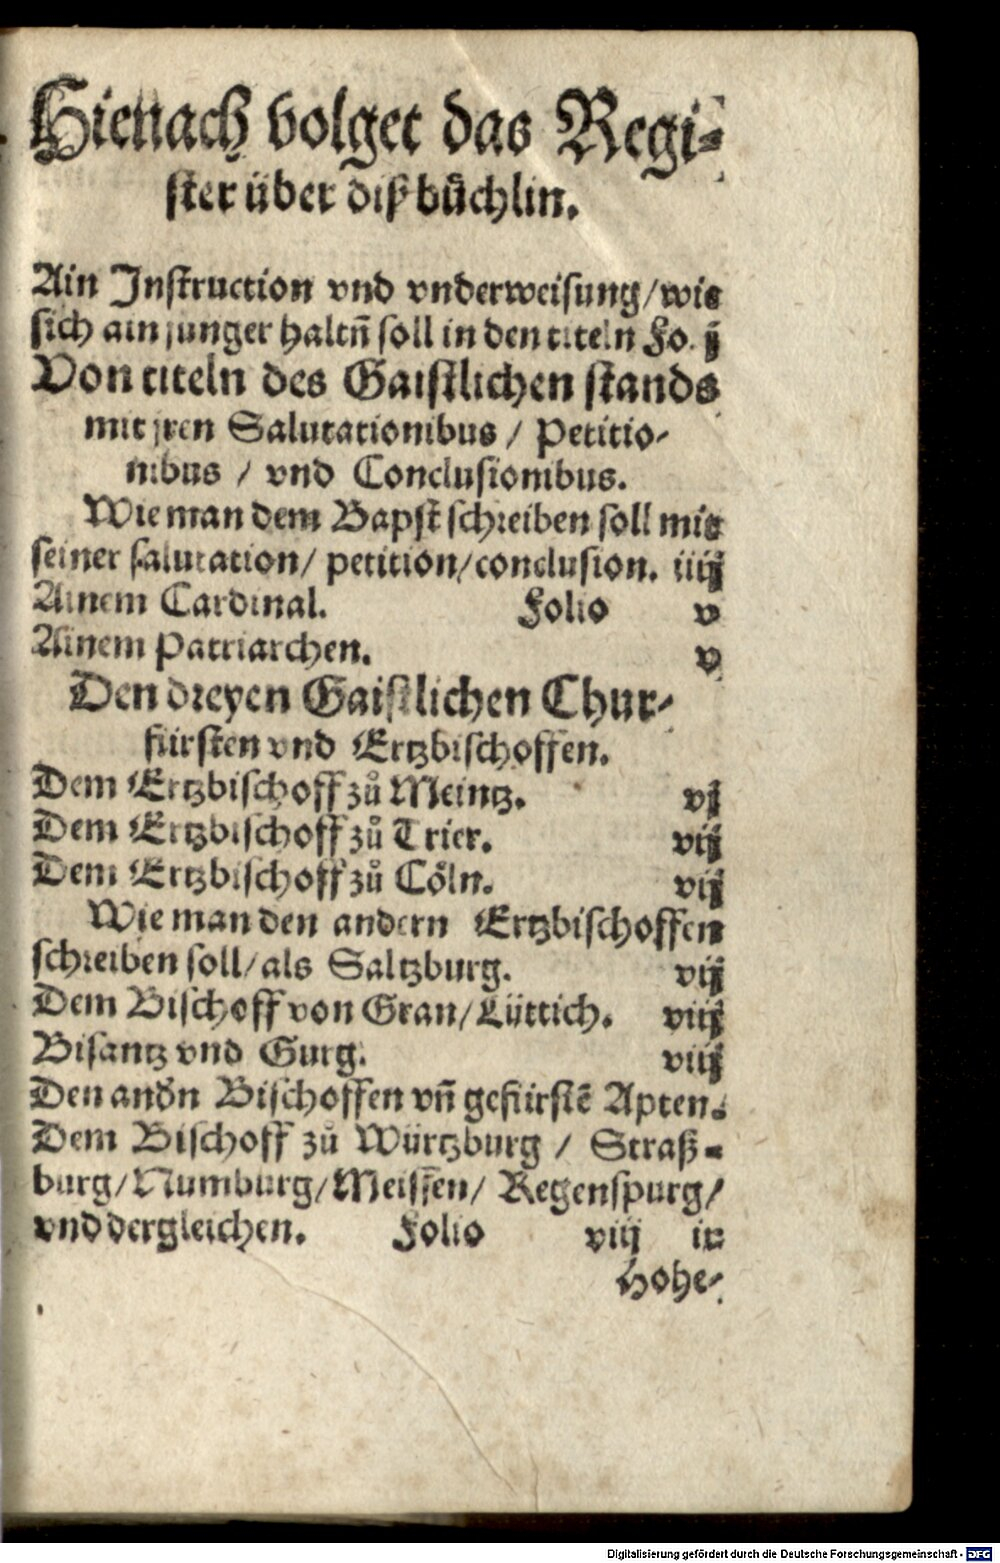 Hienach volget das Regi-
ster über diß bůchlin.
Ain Instruction vnd vnderweisung/wie
sich ain junger haltn̄ soll in den titeln Fo. ij
Von titeln des Gaistlichen stands
mit jren Salutationibus / Petitio-
nibus / vnd Conclusionibus.
Wie man dem Bapst schreiben soll mit
seiner salutation/ petition/conclusion. iiij
Ainem Cardinal. Folio v
Ainem Patriarchen. v
Den dreyen Gaistlichen Chur-
fürsten vnd Ertzbischoffen.
Dem Ertzbischoff zů Meintz. vj
Dem Ertzbischoff zů Trier. vij
Dem Ertzbischoff zů Cöln. vij
Wie man den andern Ertzbischoffen
schreiben soll/als Saltzburg. vij
Dem Bischoff von Gran/Lüttich. viij
Bisantz vnd Gurg. viij
Den andn Bischoffen vn̄ gefürstē Apten.
Dem Bischoff zů Würtzburg / Straß-
burg/Numburg/Meissen/ Regenspurg/
vnd dergleichen. Folio viij ix
Hohe-
Digitalisierung gefördert durch die Deutsche Forschungsgemeinschaft - DFG